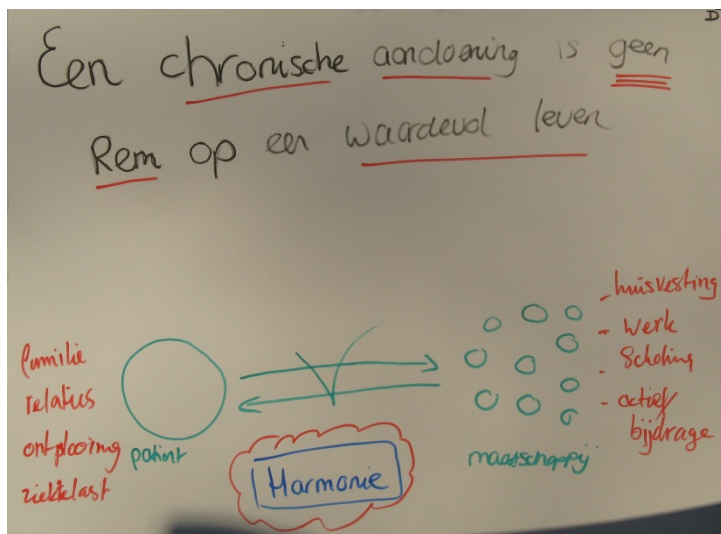 D
Een chronische aandoening is geen
Rem op een waardevol leven
familie
relaties
ontplooiing
ziektelast
patient
Harmonie
maatschappij
- huisvesting
- werk
- Scholing
- actief
bijdrage